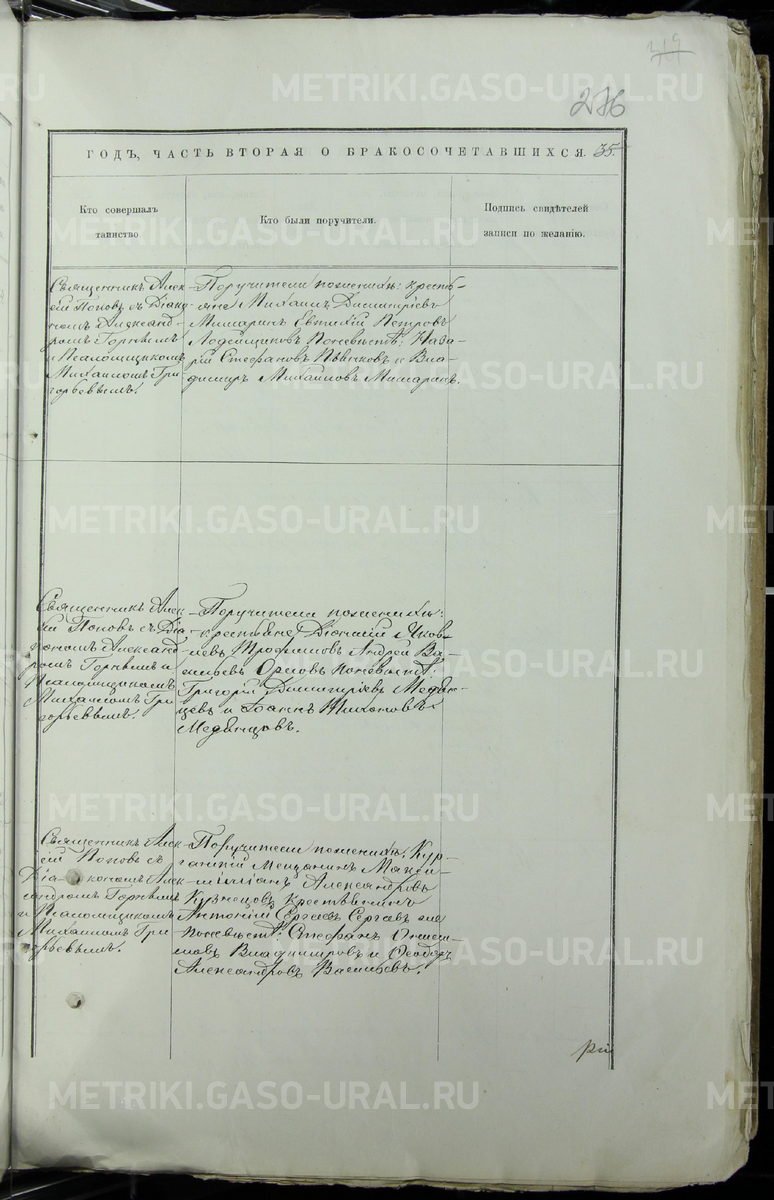 276
ГОДЪ, ЧАСТЬ ВТОРАЯ О БРАКОСОЧЕТАВШИХСЯ. 35.
Кто совершалъ
таинство
Кто были поручители.
Подпись свидѣтелей
записи по желанію.
Священникъ Алек-
сій Поповъ съ Діако-
номъ Александ-
ромъ Горнымъ
и Псаломщикомъ
Михаиломъ Гри-
горьевымъ.
Поручители по женихѣ: кресть-
яне Михаилъ Димитріевъ
Мишаринъ Евтихій Петровъ
Лодейщиковъ По невѣстѣ: Наза-
рій Стефановъ и Вла-
диміръ Михайловъ Мишаринъ.
Священникъ Алек-
сій Поповъ съ Діа-
кономъ Александ-
ромъ Горнымъ и
Псаломщикомъ
Михаиломъ Гри-
горьевымъ.
Поручители по женихѣ:
крестьяне Діонисій Яков-
левъ Трофимовъ Андрей Ва-
сильевъ Орловъ по невѣстѣ:
Григорій Димитріевъ Медвѣн-
цевъ и Іоаннъ Тихоновъ
Медвѣнцовъ.
Священникъ Алек-
сій Поповъ съ
Діакономъ Алек-
сандромъ Горнымъ
и Псаломщикомъ
Михаиломъ Гри-
горьевымъ.
Поручители по женихѣ: Кур-
ганскій Мещанинъ Макси-
миліанъ Александровъ
Кузнецовъ Крестьянинъ
Антоній Сергѣевъ Сергѣевъ
по невѣстѣ: Стефанъ Ониси-
мовъ Владиміровъ и Ѳеодоръ
Александровъ Васильевъ.
METRIKI.GASO-URAL.RU